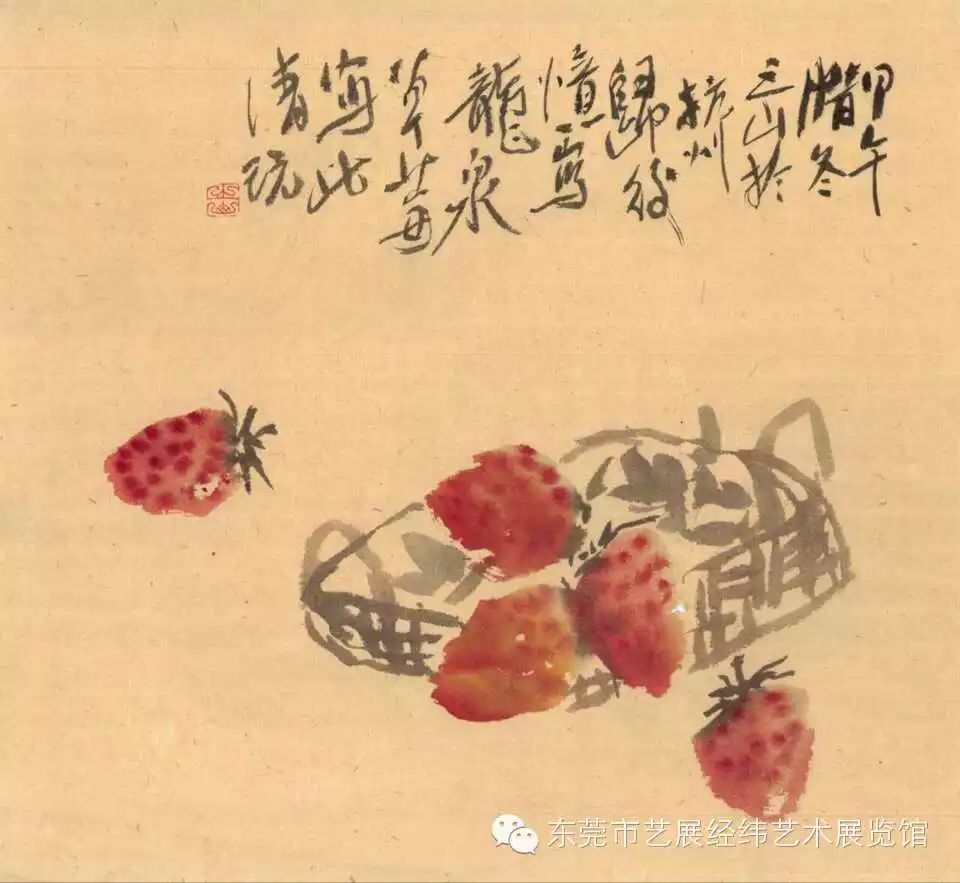 甲午
腊冬
三山於
杭州
歸後
憶寫
龍泉
草莓
寫此
清玩
东莞市艺展经纬艺术展览馆